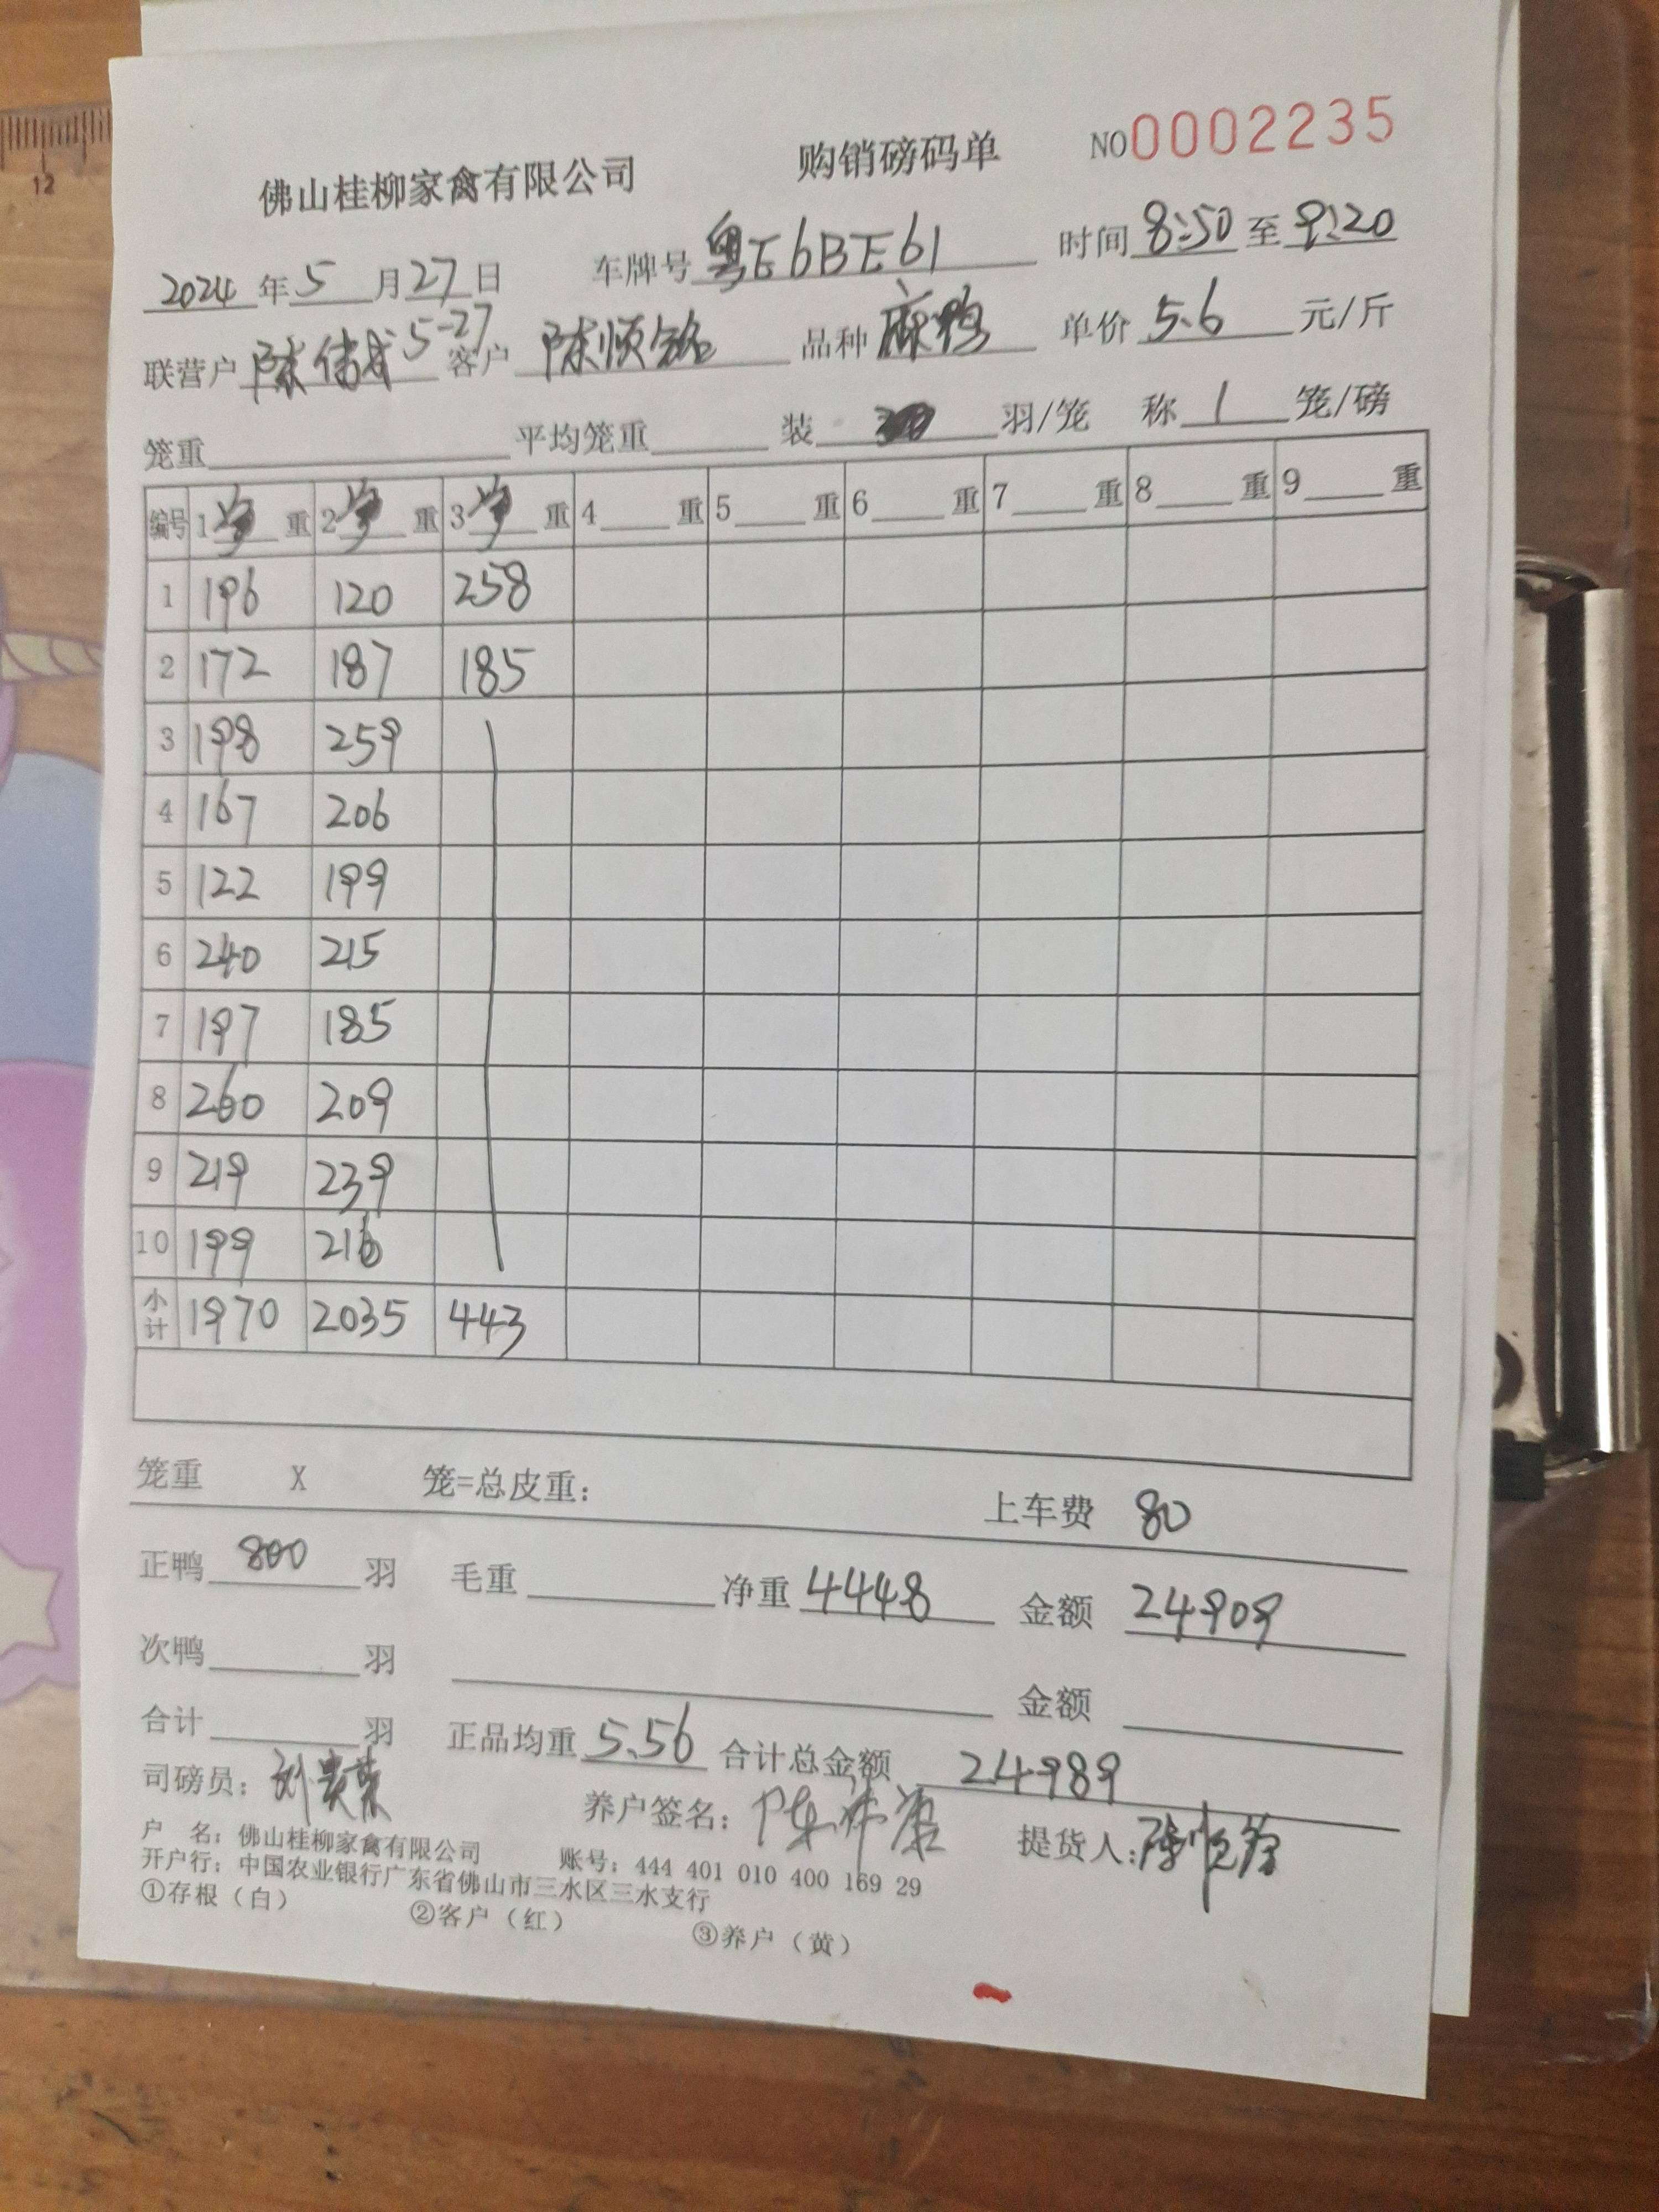 12
佛山桂柳家禽有限公司 购销磅码单 NO0002235
2024年5月27日 车牌号 粤E6BE61 时间 8:50 至 9:20
联营户 陈伟成5-27 客户 陈顺铭 品种 麻鸭 单价 5.6 元/斤
笼重 平均笼重 装 羽/笼 称 1 笼/磅
编号 1 净 重 2 净 重 3 净 重 4 重 5 重 6 重 7 重 8 重 9 重
1 196 120 258
2 172 187 185
3 198 259
4 167 206
5 122 199
6 240 215
7 197 185
8 260 209
9 219 239
10 199 216
小计 1970 2035 443
笼重 X 笼=总皮重: 上车费 80
正鸭 800 羽 毛重 净重 4448 金额 24909
次鸭 羽 金额
合计 羽 正品均重 5.56 合计总金额 24989
司磅员: 刘 养户签名: 陈 提货人: 陈顺铭
户 名: 佛山桂柳家禽有限公司 账号: 444 401 010 400 169 29
开户行: 中国农业银行广东省佛山市三水区三水支行
①存根（白） ②客户（红） ③养户（黄）